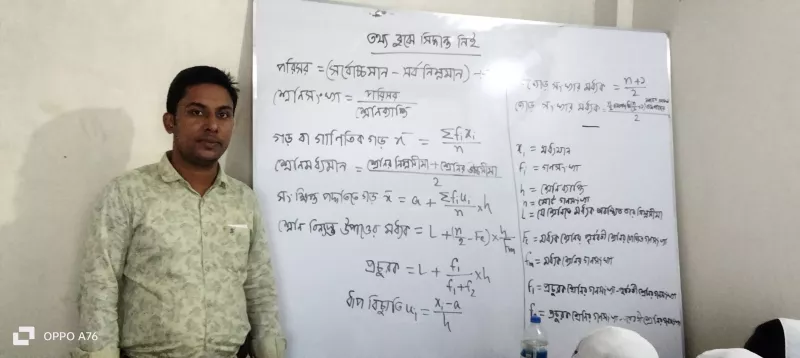 তথ্য বুঝে সিদ্ধান্ত নিই
পরিসর = (সর্বোচ্চমান - সর্ব নিম্নমান) +
শ্রেনিসংখ্যা = পরিসর / শ্রেনিব্যাপ্তি
গড় বা গাণিতিক গড় x̄ = Σfᵢxᵢ / n
শ্রেনিমধ্যমান = শ্রেনির নিম্নসীমা + শ্রেনির ঊর্ধ্বসীমা / 2
সংক্ষিপ্ত পদ্ধতিতে গড় x̄ = a + Σfᵢuᵢ / n × h
শ্রেনি বিন্যস্ত উপাত্তের মধ্যক = L + (n/2 - Fc) × h/fm
প্রচুরক = L + f₁ / f₁+f₂ × h
ধাপ বিচ্যুতি uᵢ = xᵢ-a / h
সংখ্যার মধ্যক = n+1 / 2
সংখ্যার মধ্যক = / 2
xᵢ = মধ্যমান
fᵢ = গনসংখ্যা
h = শ্রেনিব্যাপ্তি
n = মোট গনসংখ্যা
L = যে শ্রেনিতে মধ্যক অবস্থিত তার নিম্নসীমা
Fc = মধ্যক শ্রেনির পূর্ববর্তী শ্রেনির গনসংখ্যা
fm = মধ্যক শ্রেনির গনসংখ্যা
f₁ = প্রচুরক শ্রেনির গনসংখ্যা - পূর্ববর্তী শ্রেনির গনসংখ্যা
f₂ = প্রচুরক শ্রেনির গনসংখ্যা - পরবর্তী শ্রেনির গনসংখ্যা
OPPO A76